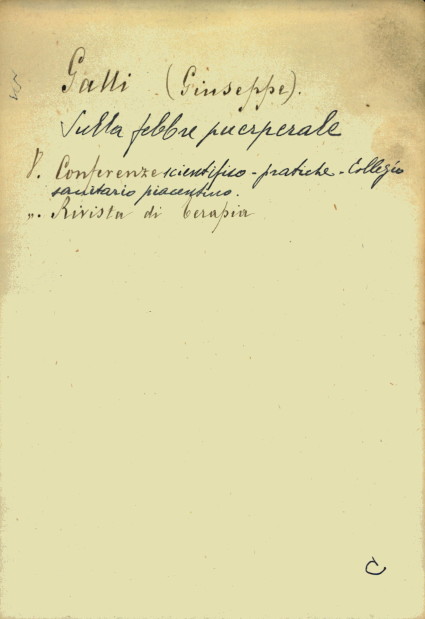 Galli (Giuseppe).
Sulla febbre puerperale
V. Conferenze scientifico-pratiche - Collegio
sanitario piacentino.
„. Rivista di terapia
C